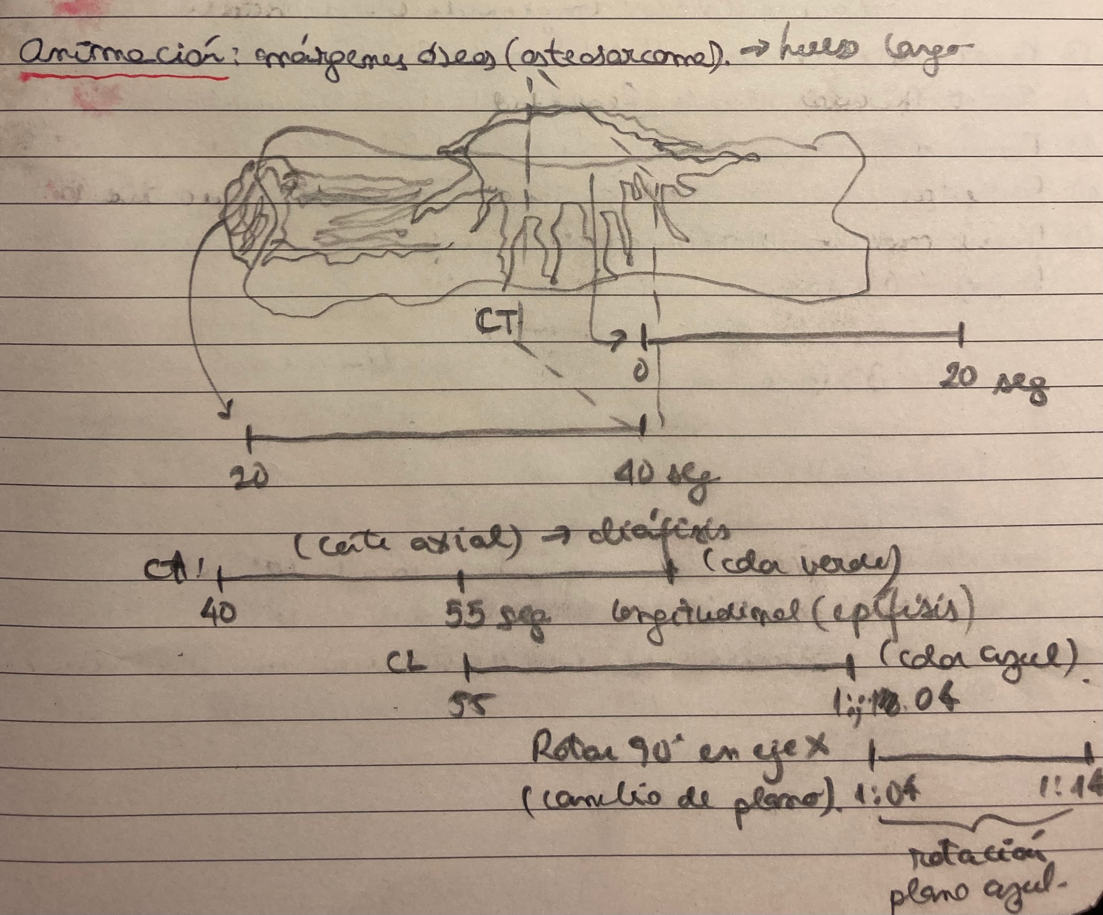 animación: márgenes óseos (osteosarcoma). → hueso largo
CT
0
20 seg
20
40 seg
(corte axial) → diáfisis
CA (color verde)
40
55 seg longitudinal (epífisis)
CL (color azul).
55
04
Rotar 90° en eje X
(cambio de plano). 1:04 1:14
rotación
plano azul.